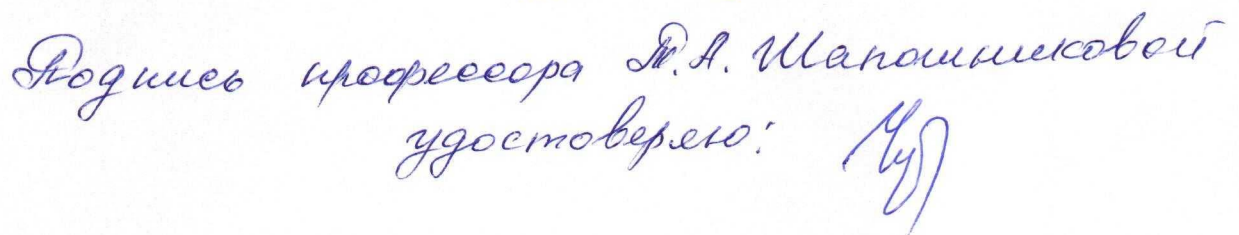 Подпись профессора Т.А. Шапошниковой
удостоверяю: